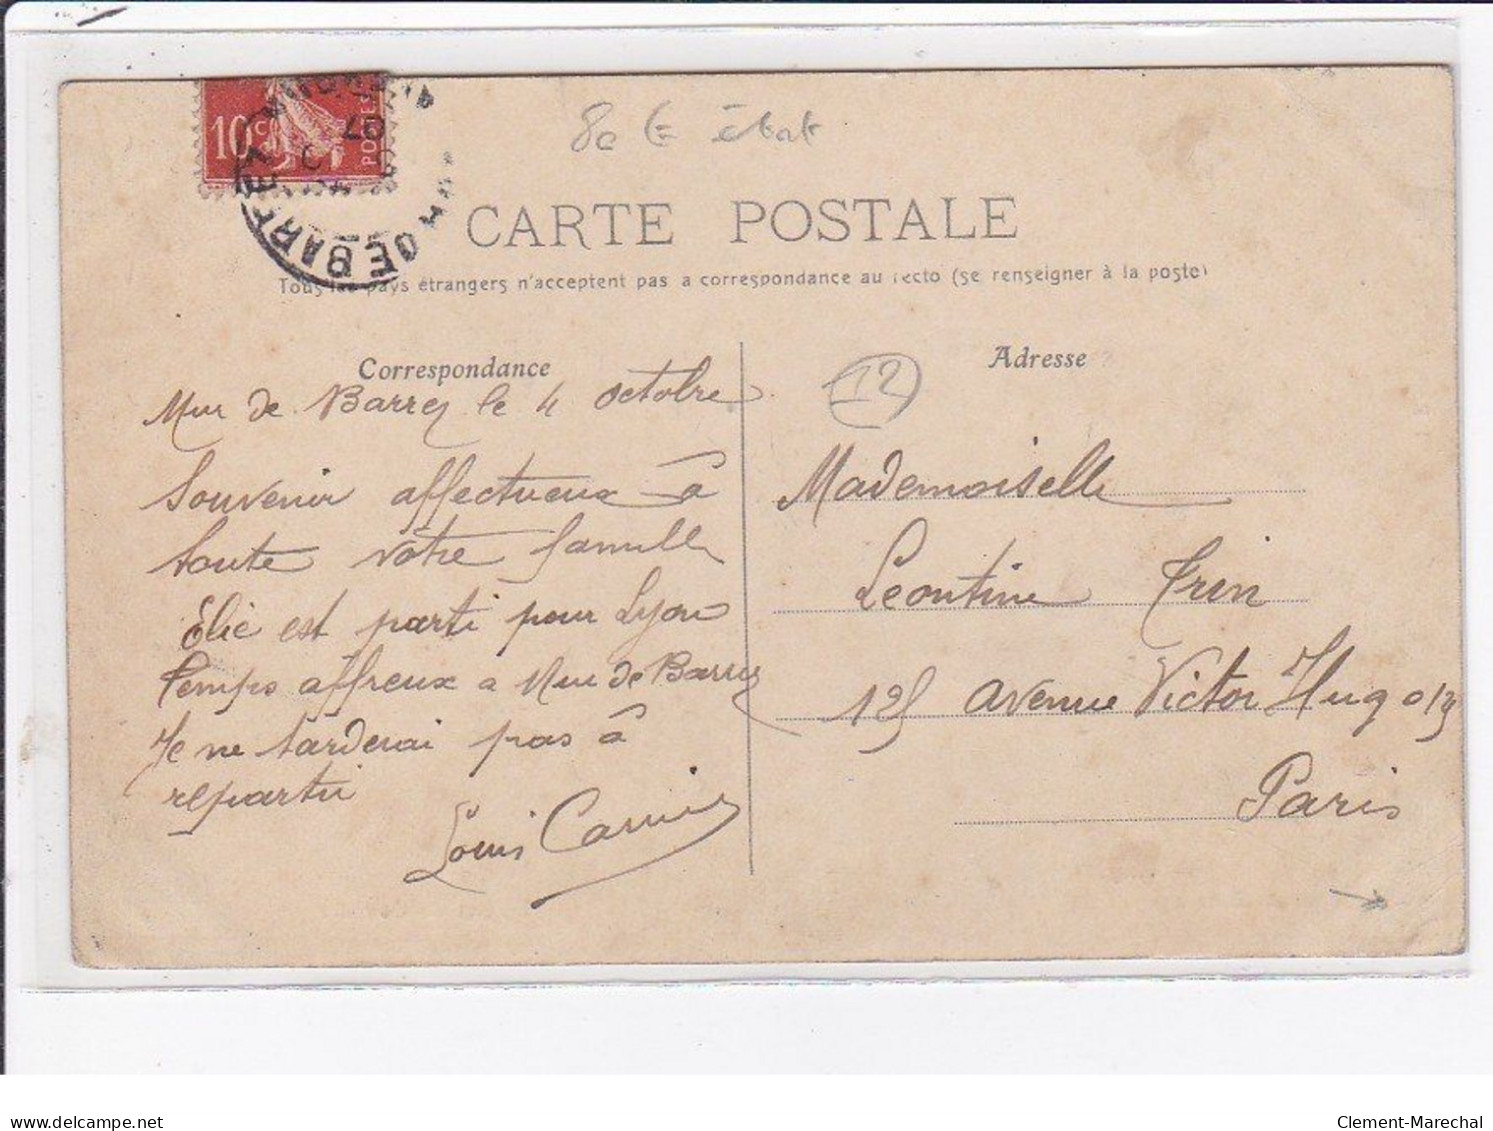 80 € état
10 c
POSTES
MUR DE BARREZ
07
CARTE POSTALE
Tous les pays étrangers n'acceptent pas a correspondance au recto (se renseigner à la poste)
Correspondance
Mur de Barrez le 4 octobre
Souvenir affectueux à
toute votre famille
Elie est parti pour Lyon
Temps affreux a Mur de Barrez
Je ne tarderai pas à
repartir
Louis
Adresse
12
Mademoiselle
Leontine
125 avenue Victor Hugo
Paris
delcampe.net
Clement-Marechal